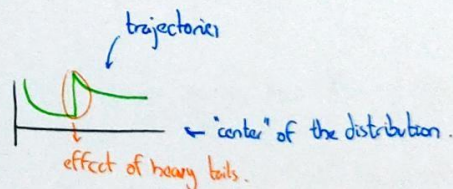 trajectories
← "center" of the distribution.
effect of heavy tails.